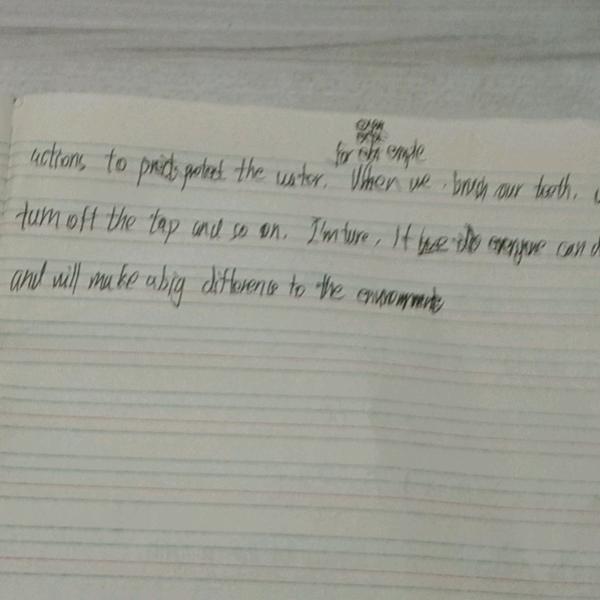 for emple
actions to protect the water. When we brush our tooth,
turn off the tap and so on. I'm ture, It everyone can d
and will make a big difference to the